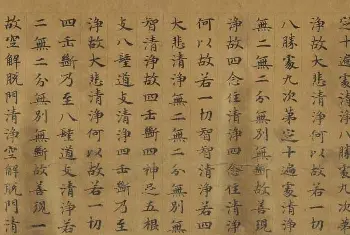 定十遍處清淨
淨故大悲清淨何以故若一
八勝處九次第定十遍處清淨
無二無二分無別無斷故善
淨故四念住清淨四念住清淨
何以故若一切智智清淨若四
大悲清淨無二無二分無別無
智清淨故四正斷四神足五根
支八聖道支清淨四正斷乃至
淨故大悲清淨何以故若一切
四正斷乃至八聖道支清淨若
二無二分無別無斷故善現一
故空解脫門清淨空解脫門清